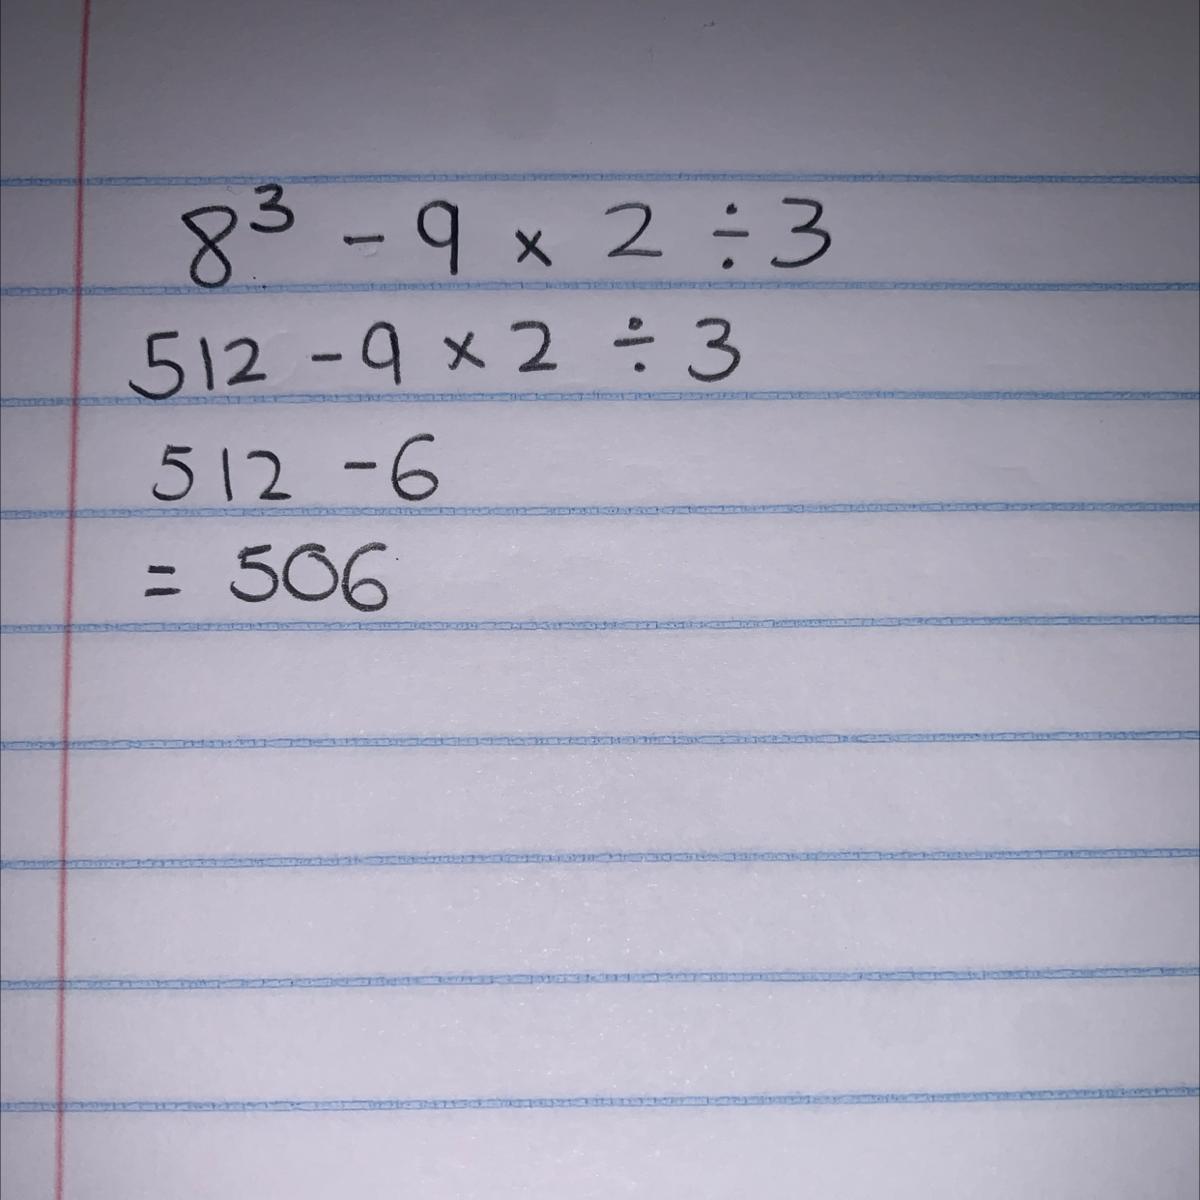 8³ - 9 × 2 ÷ 3
512 - 9 × 2 ÷ 3
512 - 6
= 506